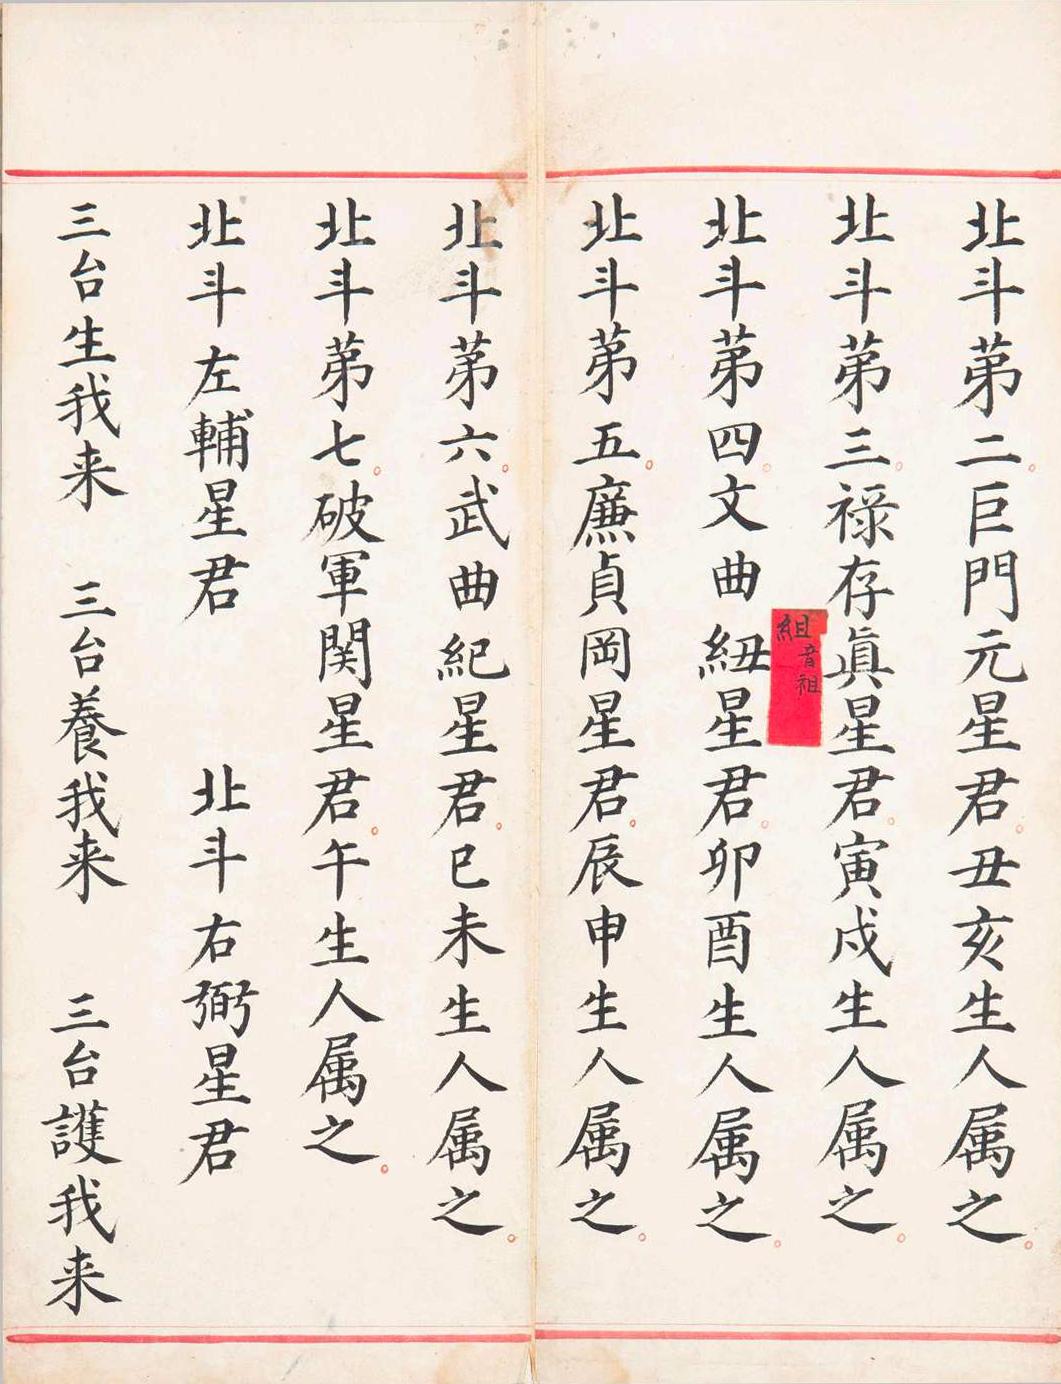 北斗第二。巨門元星君。丑亥生人属之。
北斗第三。禄存眞星君。寅戌生人属之。
組音祖
北斗第四。文曲紐星君。卯酉生人属之。
北斗第五。廉貞岡星君。辰申生人属之。
北斗第六。武曲紀星君。巳未生人属之。
北斗第七。破軍関星君。午生人属之。
北斗左輔星君 北斗右弼星君
三台生我来 三台養我来 三台護我来